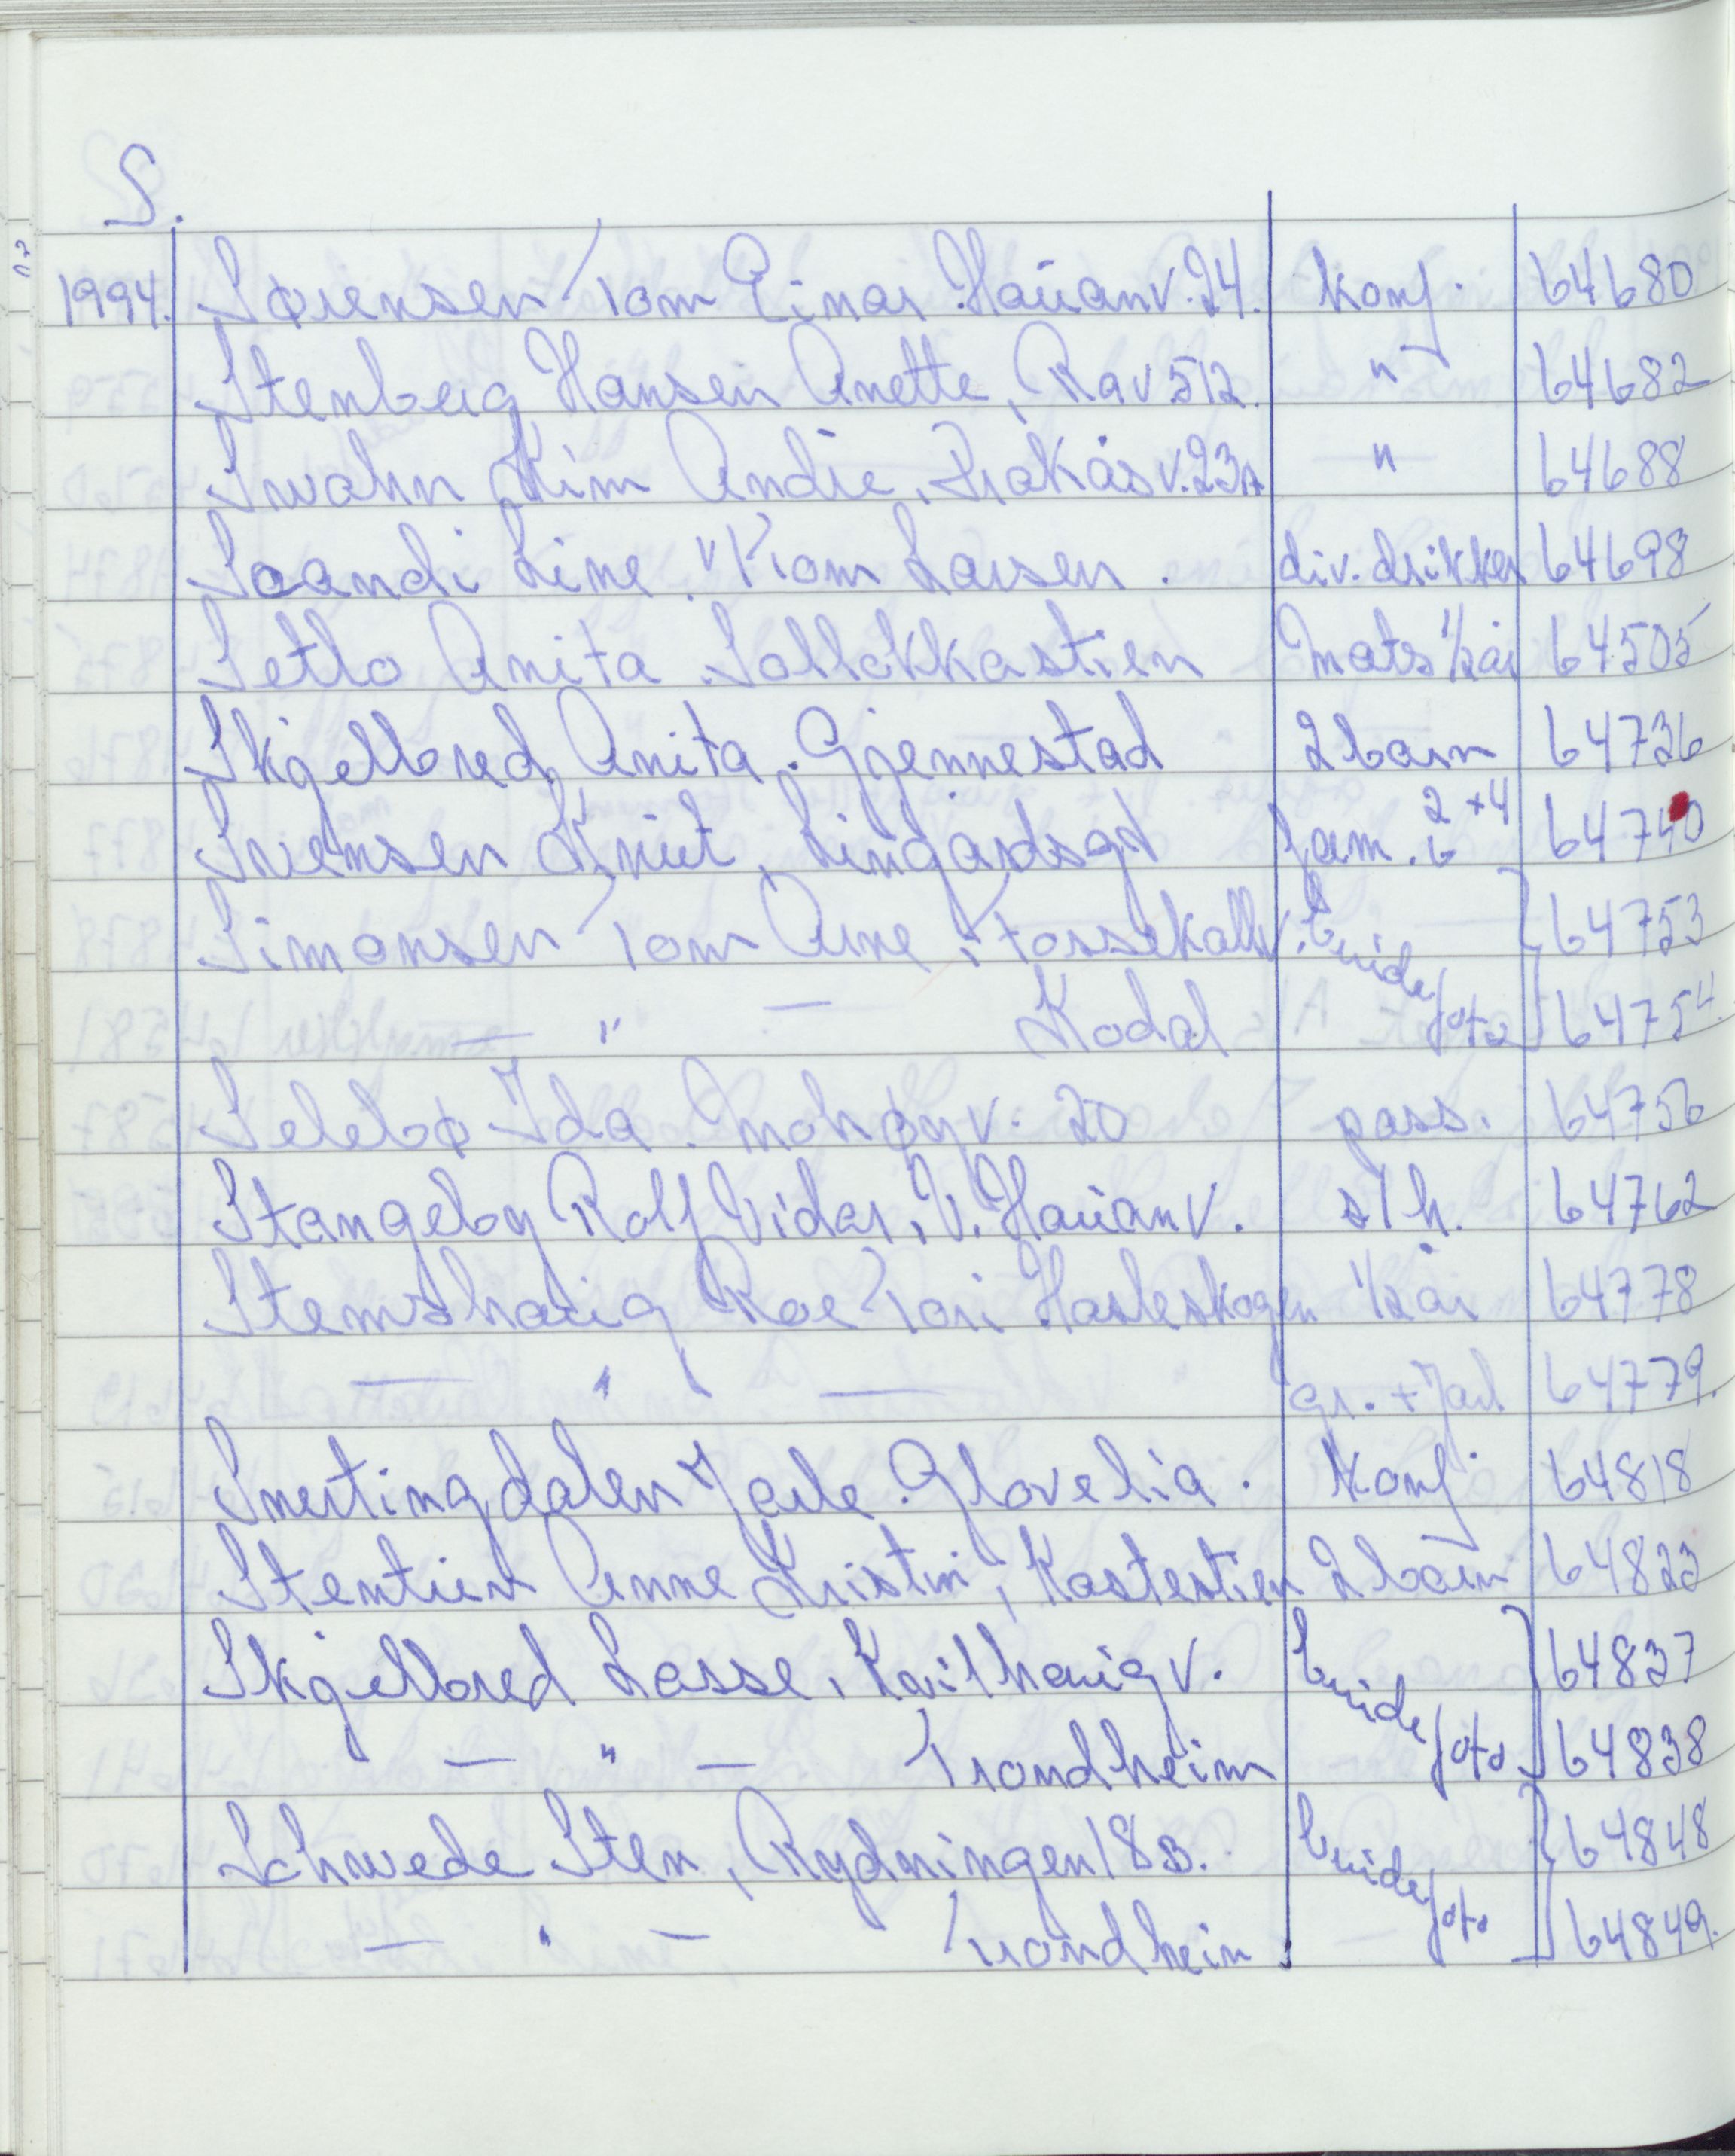 S.
1994. Sørensen Tom Einar. Hauanv. 24. konf. 64680
Stenberg Hansen Anette, Rav 512. " 64682
Swahn Kim Andre, Bråkåsv. 23A " 64688
Saandi Line. v/Tom Larsen. div. drikker 64698
Setlo Anita. Solløkkastien Mats 1/2 år 64505
Skjellbred Anita. Gjennestad 2 barn 64736
Svensen Knut, Lingardsgt fam. 2+4 6 64740
Simonsen Tom Arne, Fossekallv. brude 64753
— " — Kodal foto 64754.
Selebø Ida. Mohøyv. 20 pass. 64756
Stangeby Rolf Vidar, V. Hauanv. s/h. 64762
Stemshaug Roe Tori Hasleskogen 1/2 år 64778
— " — gr. + Jarl 64779.
Smertingdalen Jarle. Glovelia. konf. 64818
Stentien Anne Kristin, Kastestien 2 barn 64823
Skjellbred Lasse, Kvilhaugv. brude 64837
— " — Trondheim foto 64838
Schwede Sten, Rydningen 18B. brude 64848
— " — Trondheim foto 64849.